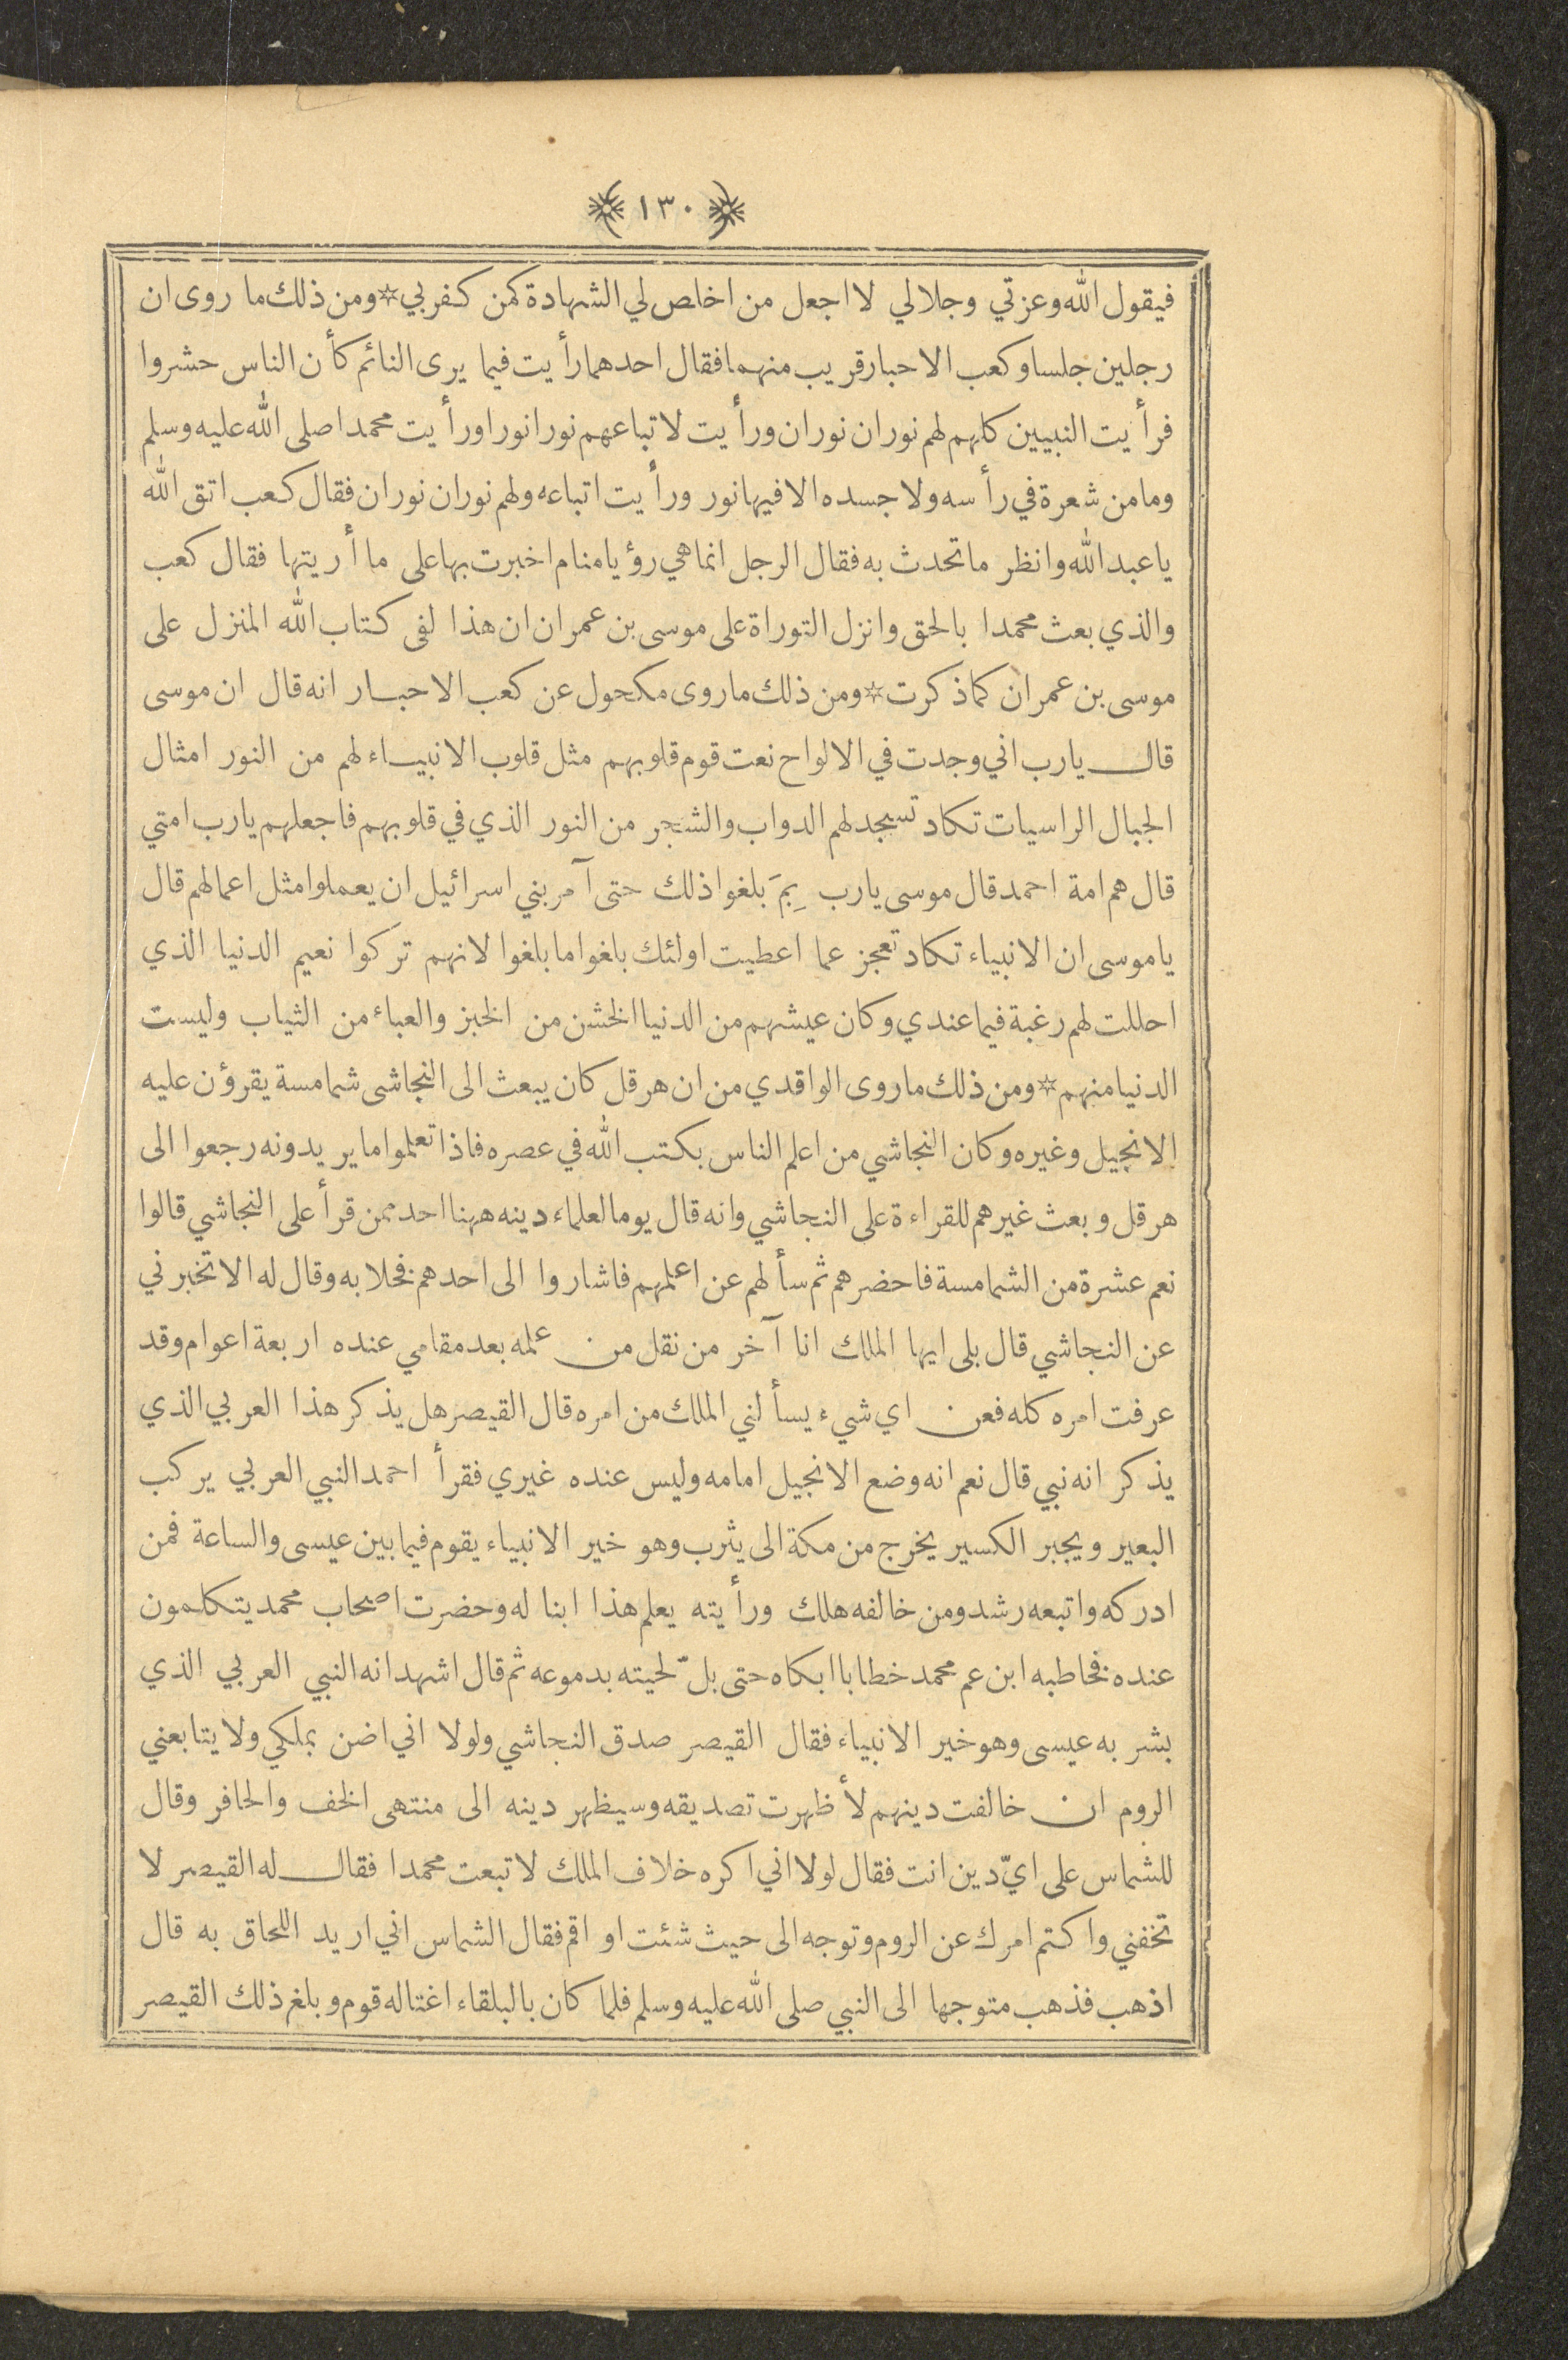 ١٣٠
فيقول الله وعزتي وجلالي لا اجعل من اخلص لي الشهادة كمن كفر بي * ومن ذلك ما روى ان
رجلين جلسا وكعب الاحبار قريب منهما فقال احدهما رأيت فيما يرى النائم كأن الناس حشروا
فرأيت النبيين كلهم لهم نوران نوران ورأيت لاتباعهم نورا نورا ورأيت محمدا صلى الله عليه وسلم
وما من شعرة في رأسه ولا جسده الا فيها نور ورأيت اتباعه ولهم نوران نوران فقال كعب اتق الله
يا عبد الله وانظر ما تحدث به فقال الرجل انما هي رؤيا منام اخبرت بها على ما أريتها فقال كعب
والذي بعث محمدا بالحق وانزل التوراة على موسى بن عمران ان هذا لفى كتاب الله المنزل على
موسى بن عمران كما ذكرت * ومن ذلك ما روى مكحول عن كعب الاحبار انه قال ان موسى
قال يا رب اني وجدت في الالواح نعت قوم قلوبهم مثل قلوب الانبياء لهم من النور امثال
الجبال الراسيات تكاد تسجد لهم الدواب والشجر من النور الذي في قلوبهم فاجعلهم يا رب امتي
قال هم امة احمد قال موسى يا رب بِمَ بلغوا ذلك حتى آمر بني اسرائيل ان يعملوا مثل اعمالهم قال
يا موسى ان الانبياء تكاد تعجز عما اعطيت اولئك بلغوا ما بلغوا لانهم تركوا نعيم الدنيا الذي
احللت لهم رغبة فيما عندي وكان عيشهم من الدنيا الخشن من الخبز والعباء من الثياب وليست
الدنيا منهم * ومن ذلك ما روى الواقدي من ان هرقل كان يبعث الى النجاشى شمامسة يقرؤن عليه
الانجيل وغيره وكان النجاشي من اعلم الناس بكتب الله في عصره فاذا تعلموا ما يريدونه رجعوا الى
هرقل وبعث غيرهم للقراءة على النجاشي وانه قال يوما لعلماء دينه ههنا احد ممن قرأ على النجاشي قالوا
نعم عشرة من الشمامسة فاحضرهم ثم سألهم عن اعلمهم فاشاروا الى احدهم فخلا به وقال له الا تخبرني
عن النجاشي قال بلى ايها الملك انا آخر من نقل من علمه بعد مقامي عنده اربعة اعوام وقد
عرفت امره كله فعن اي شيء يسألني الملك من امره قال القيصر هل يذكر هذا العربي الذي
يذكر انه نبي قال نعم انه وضع الانجيل امامه وليس عنده غيري فقرأ احمد النبي العربي يركب
البعير ويجبر الكسير يخرج من مكة الى يثرب وهو خير الانبياء يقوم فيما بين عيسى والساعة فمن
ادركه واتبعه رشد ومن خالفه هلك ورأيته يعلم هذا ابنا له وحضرت اصحاب محمد يتكلمون
عنده فخاطبه ابن عم محمد خطابا ابكاه حتى بلّ لحيته بدموعه ثم قال اشهد انه النبي العربي الذي
بشر به عيسى وهو خير الانبياء فقال القيصر صدق النجاشي ولولا اني اضن بملكي ولا يتابعني
الروم ان خالفت دينهم لأظهرت تصديقه وسيظهر دينه الى منتهى الخف والحافر وقال
للشماس على ايّ دين انت فقال لولا اني اكره خلاف الملك لاتبعت محمدا فقال له القيصر لا
تخفني واكتم امرك عن الروم وتوجه الى حيث شئت او اقم فقال الشماس اني اريد اللحاق به قال
اذهب فذهب متوجها الى النبي صلى الله عليه وسلم فلما كان بالبلقاء اغتاله قوم وبلغ ذلك القيصر